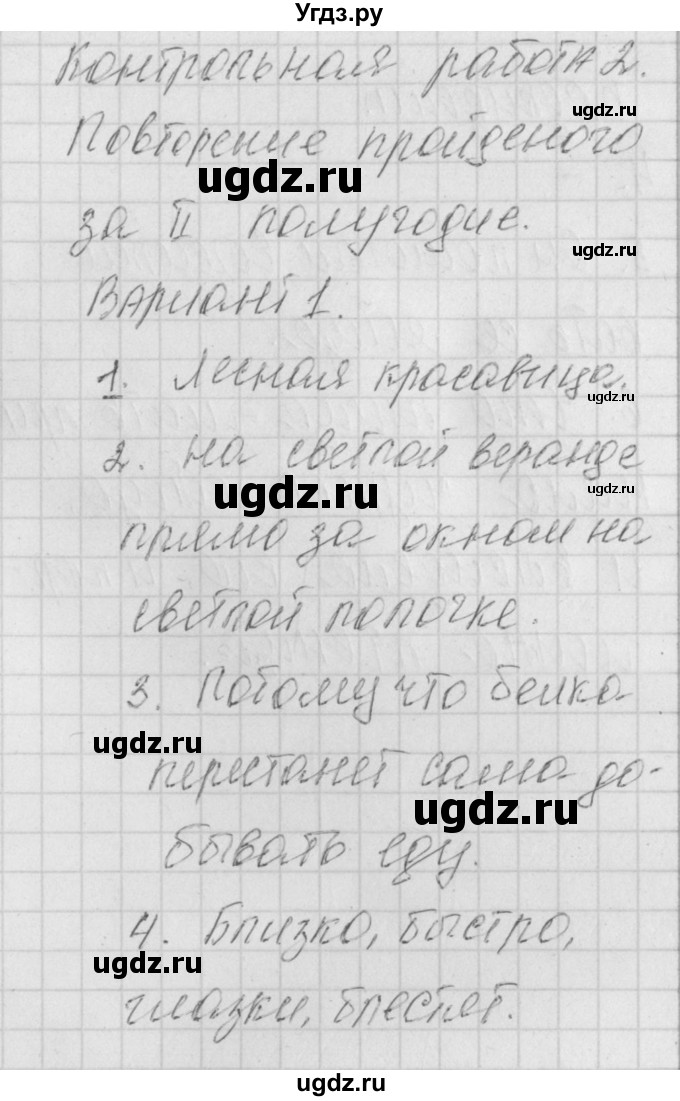 Угдз.ру
Контрольная работа 2.
ugdz.ru
Повторение пройденого
ugdz.ru
за II полугодие.
ugdz.ru
Вариант 1.
1. Лесная красавица.
ugdz.ru
2. на светлой веранде
ugdz.ru
ugdz.ru
прямо за окном на
светлой полочке.
3. Потому что белка
ugdz.ru
перестанет сама до-
ugdz.ru
бывать еду.
4. Близко, быстро,
ugdz.ru
глазки, блестят.
ugdz.ru